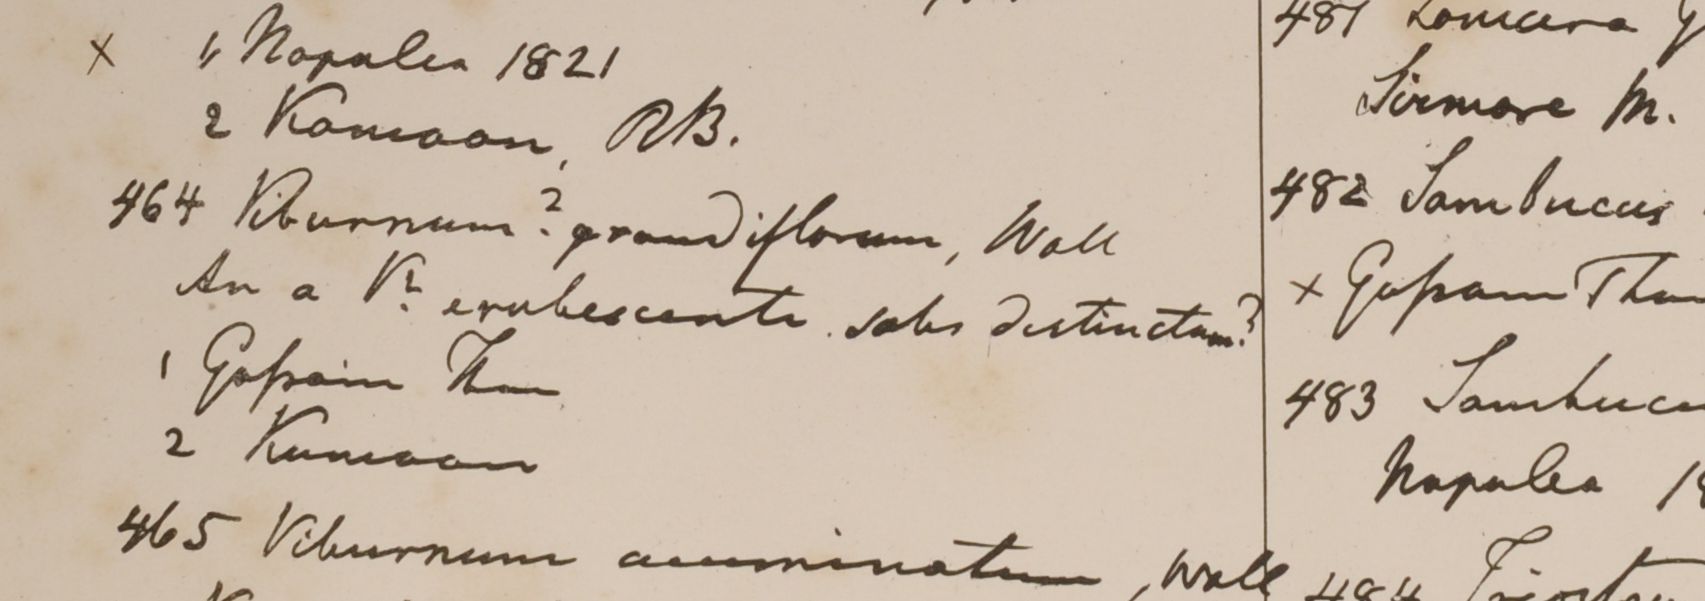 × 1, Napalea 1821
2 Kamaon, RB.
464 Viburnum? grandiflorum, Wall
An a Vn. erubescente satis distinctum?
1 Gossain Than
2 Kamaon
465 Viburnum acuminatum, Wall
481 Lonicera
Sirmore M.
482 Sambucus
× Gossain Than
483 Sambucu
Napalea 18
484